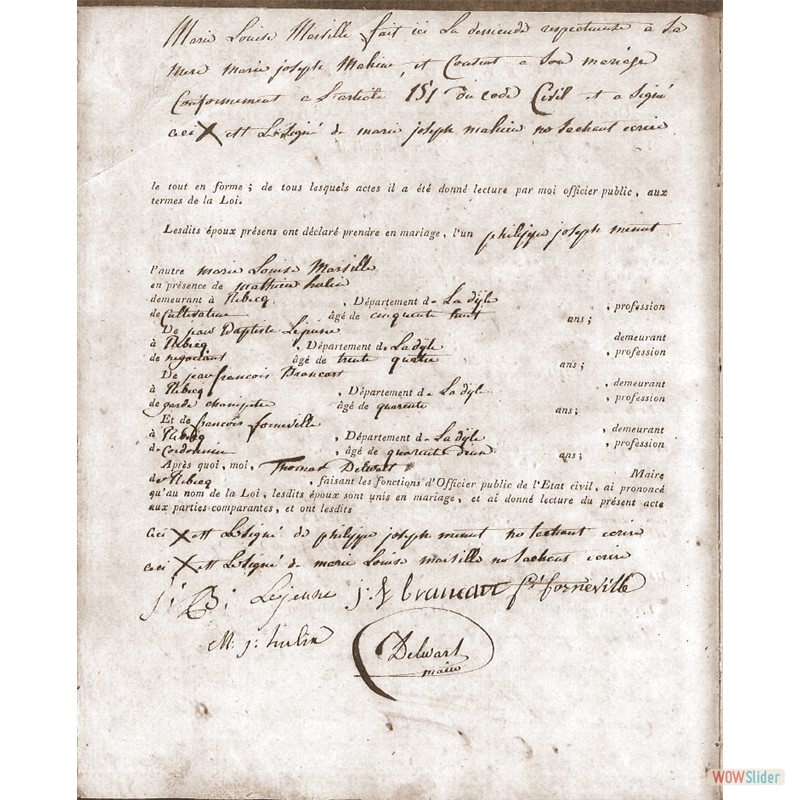 Marie Louise Marsille fait ici La demende respectueuse a Sa
mere marie joseph Mahieu, et Consent a Son mariage
Conformement a L'article 151 du code Civil et a Signé
ceci X est Le Signé de marie joseph mahieu no sachant ecrire
le tout en forme ; de tous lesquels actes il a été donné lecture par moi officier public, aux
termes de la Loi.
Lesdits époux présens ont déclaré prendre en mariage, l'un philippe joseph minut
l'autre marie Louise Marsille
en présence de mathieu hulin
demeurant à Rebecq , Département de La dyle , profession
de Cultivateur âgé de cinquente huit ans ;
De jean Baptiste Lejeune demeurant
à Rebecq , Département de La dyle , profession
de negociant âgé de trente quatre ans ;
De jean francois Brancart , demeurant
à Rebecq , Département de La dyle , profession
de garde champetre âgé de quarente ans ;
Et de francois forneville , demeurant
à Rebecq , Département de La dyle , profession
de Cordonnier , âgé de quarente deux ans ;
Après quoi, moi, Thomas Delwart Maire
de Rebecq , faisant les fonctions d'Officier public de l'Etat civil, ai prononcé
qu'au nom de la Loi, lesdits époux sont unis en mariage, et ai donné lecture du présent acte
aux parties comparantes, et ont lesdits
ceci X est Le Signé de philippe joseph minut no sachant ecrire
ceci X est Le Signé de marie Louise marsille no sachant ecrire
j: B: Lejeune j: f brancart f: forneville
M: j: hulin
Delwart
maire
WOWSlider